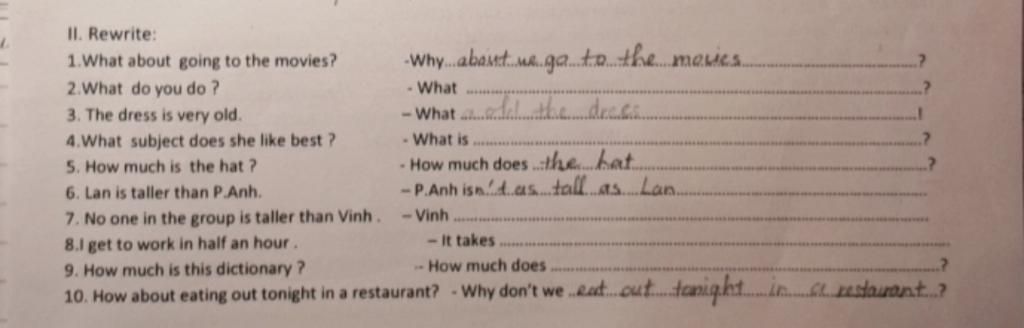 II. Rewrite:
1.What about going to the movies? -Why about we go to the movies ?
2.What do you do ? - What ?
3. The dress is very old. – What a old the drees !
4.What subject does she like best ? - What is ?
5. How much is the hat ? - How much does the hat ?
6. Lan is taller than P.Anh. – P.Anh isn't as tall as Lan
7. No one in the group is taller than Vinh . – Vinh
8.I get to work in half an hour . – It takes
9. How much is this dictionary ? -- How much does ?
10. How about eating out tonight in a restaurant? - Why don't we eat out tonight in a restaurant ?